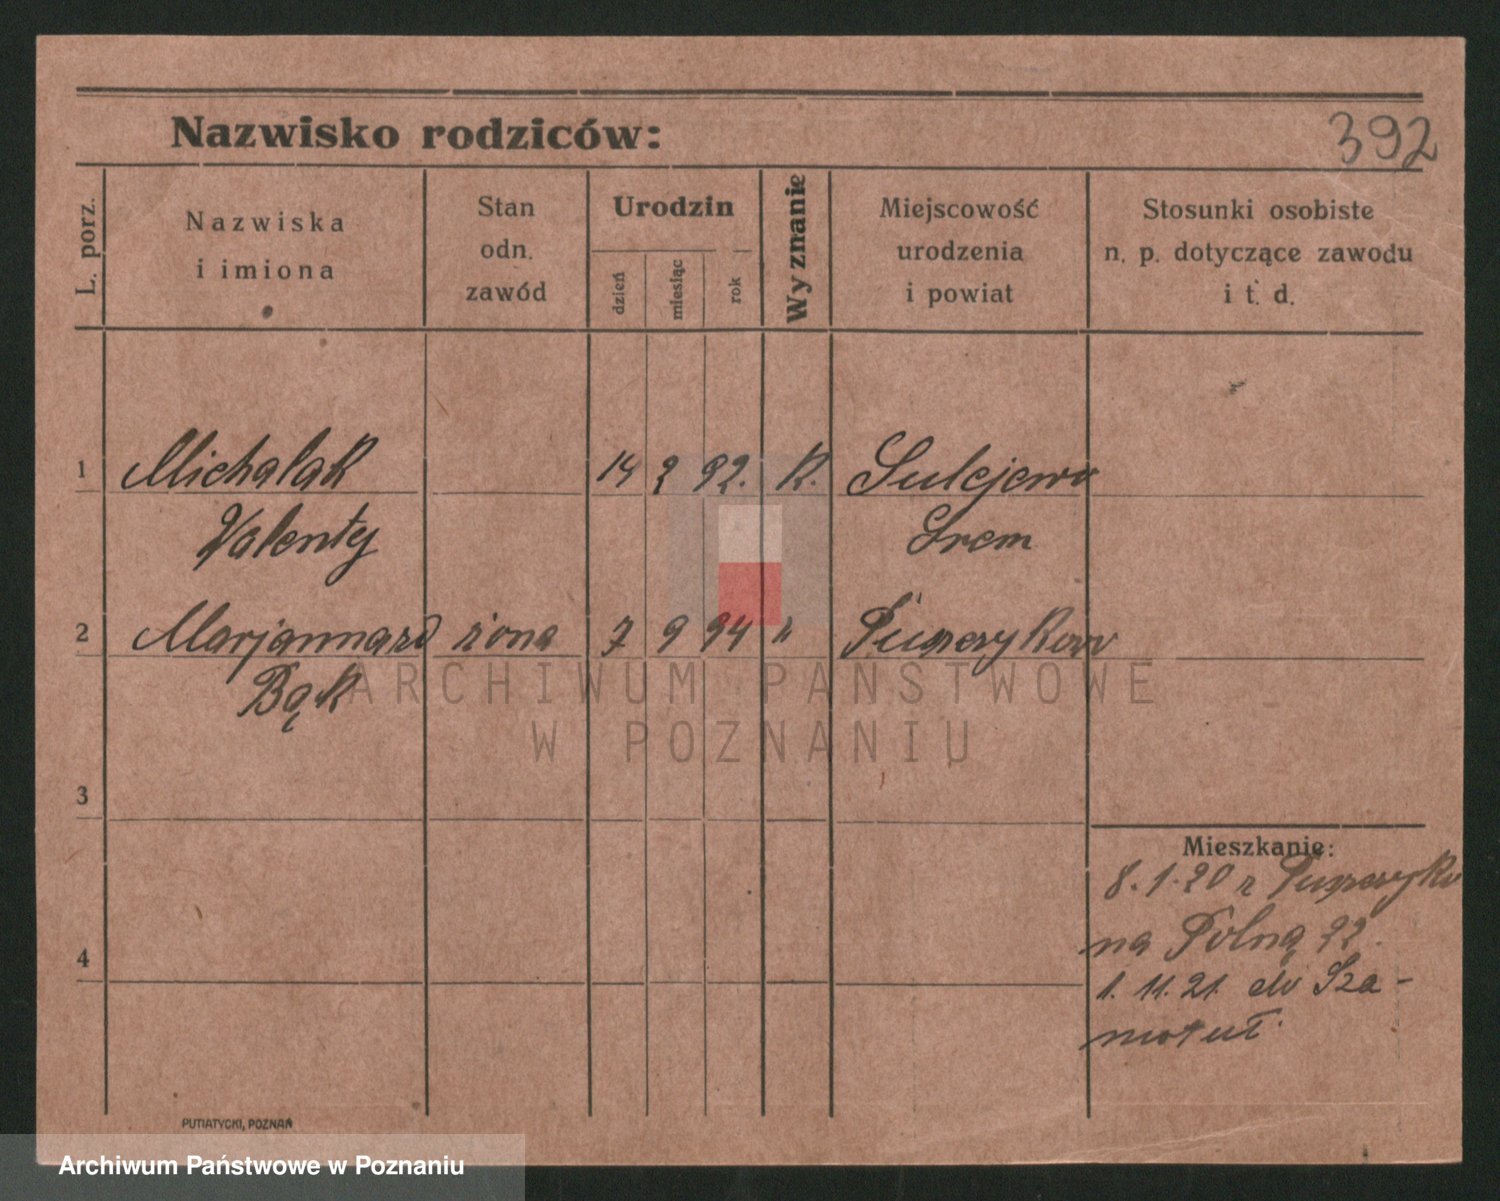 392
Nazwisko rodziców:
L. porz.
Nazwiska
i imiona
Stan
odn.
zawód
Urodzin
dzień
miesiąc
rok
Wyznanie
Miejscowość
urodzenia
i powiat
Stosunki osobiste
n. p. dotyczące zawodu
i t. d.
1 Michalak 14 2 92. K. Sulejewo
Walenty Śrem
2 Marjanna żona 7 9 94 "
Bąk
ARCHIWUM PAŃSTWOWE
W POZNANIU
3
Mieszkanie:
8.1.20 z
na Polną 22.
4
1. 11. 21. do Sza-
motuł.
PUTIATYCKI, POZNAŃ
Archiwum Państwowe w Poznaniu